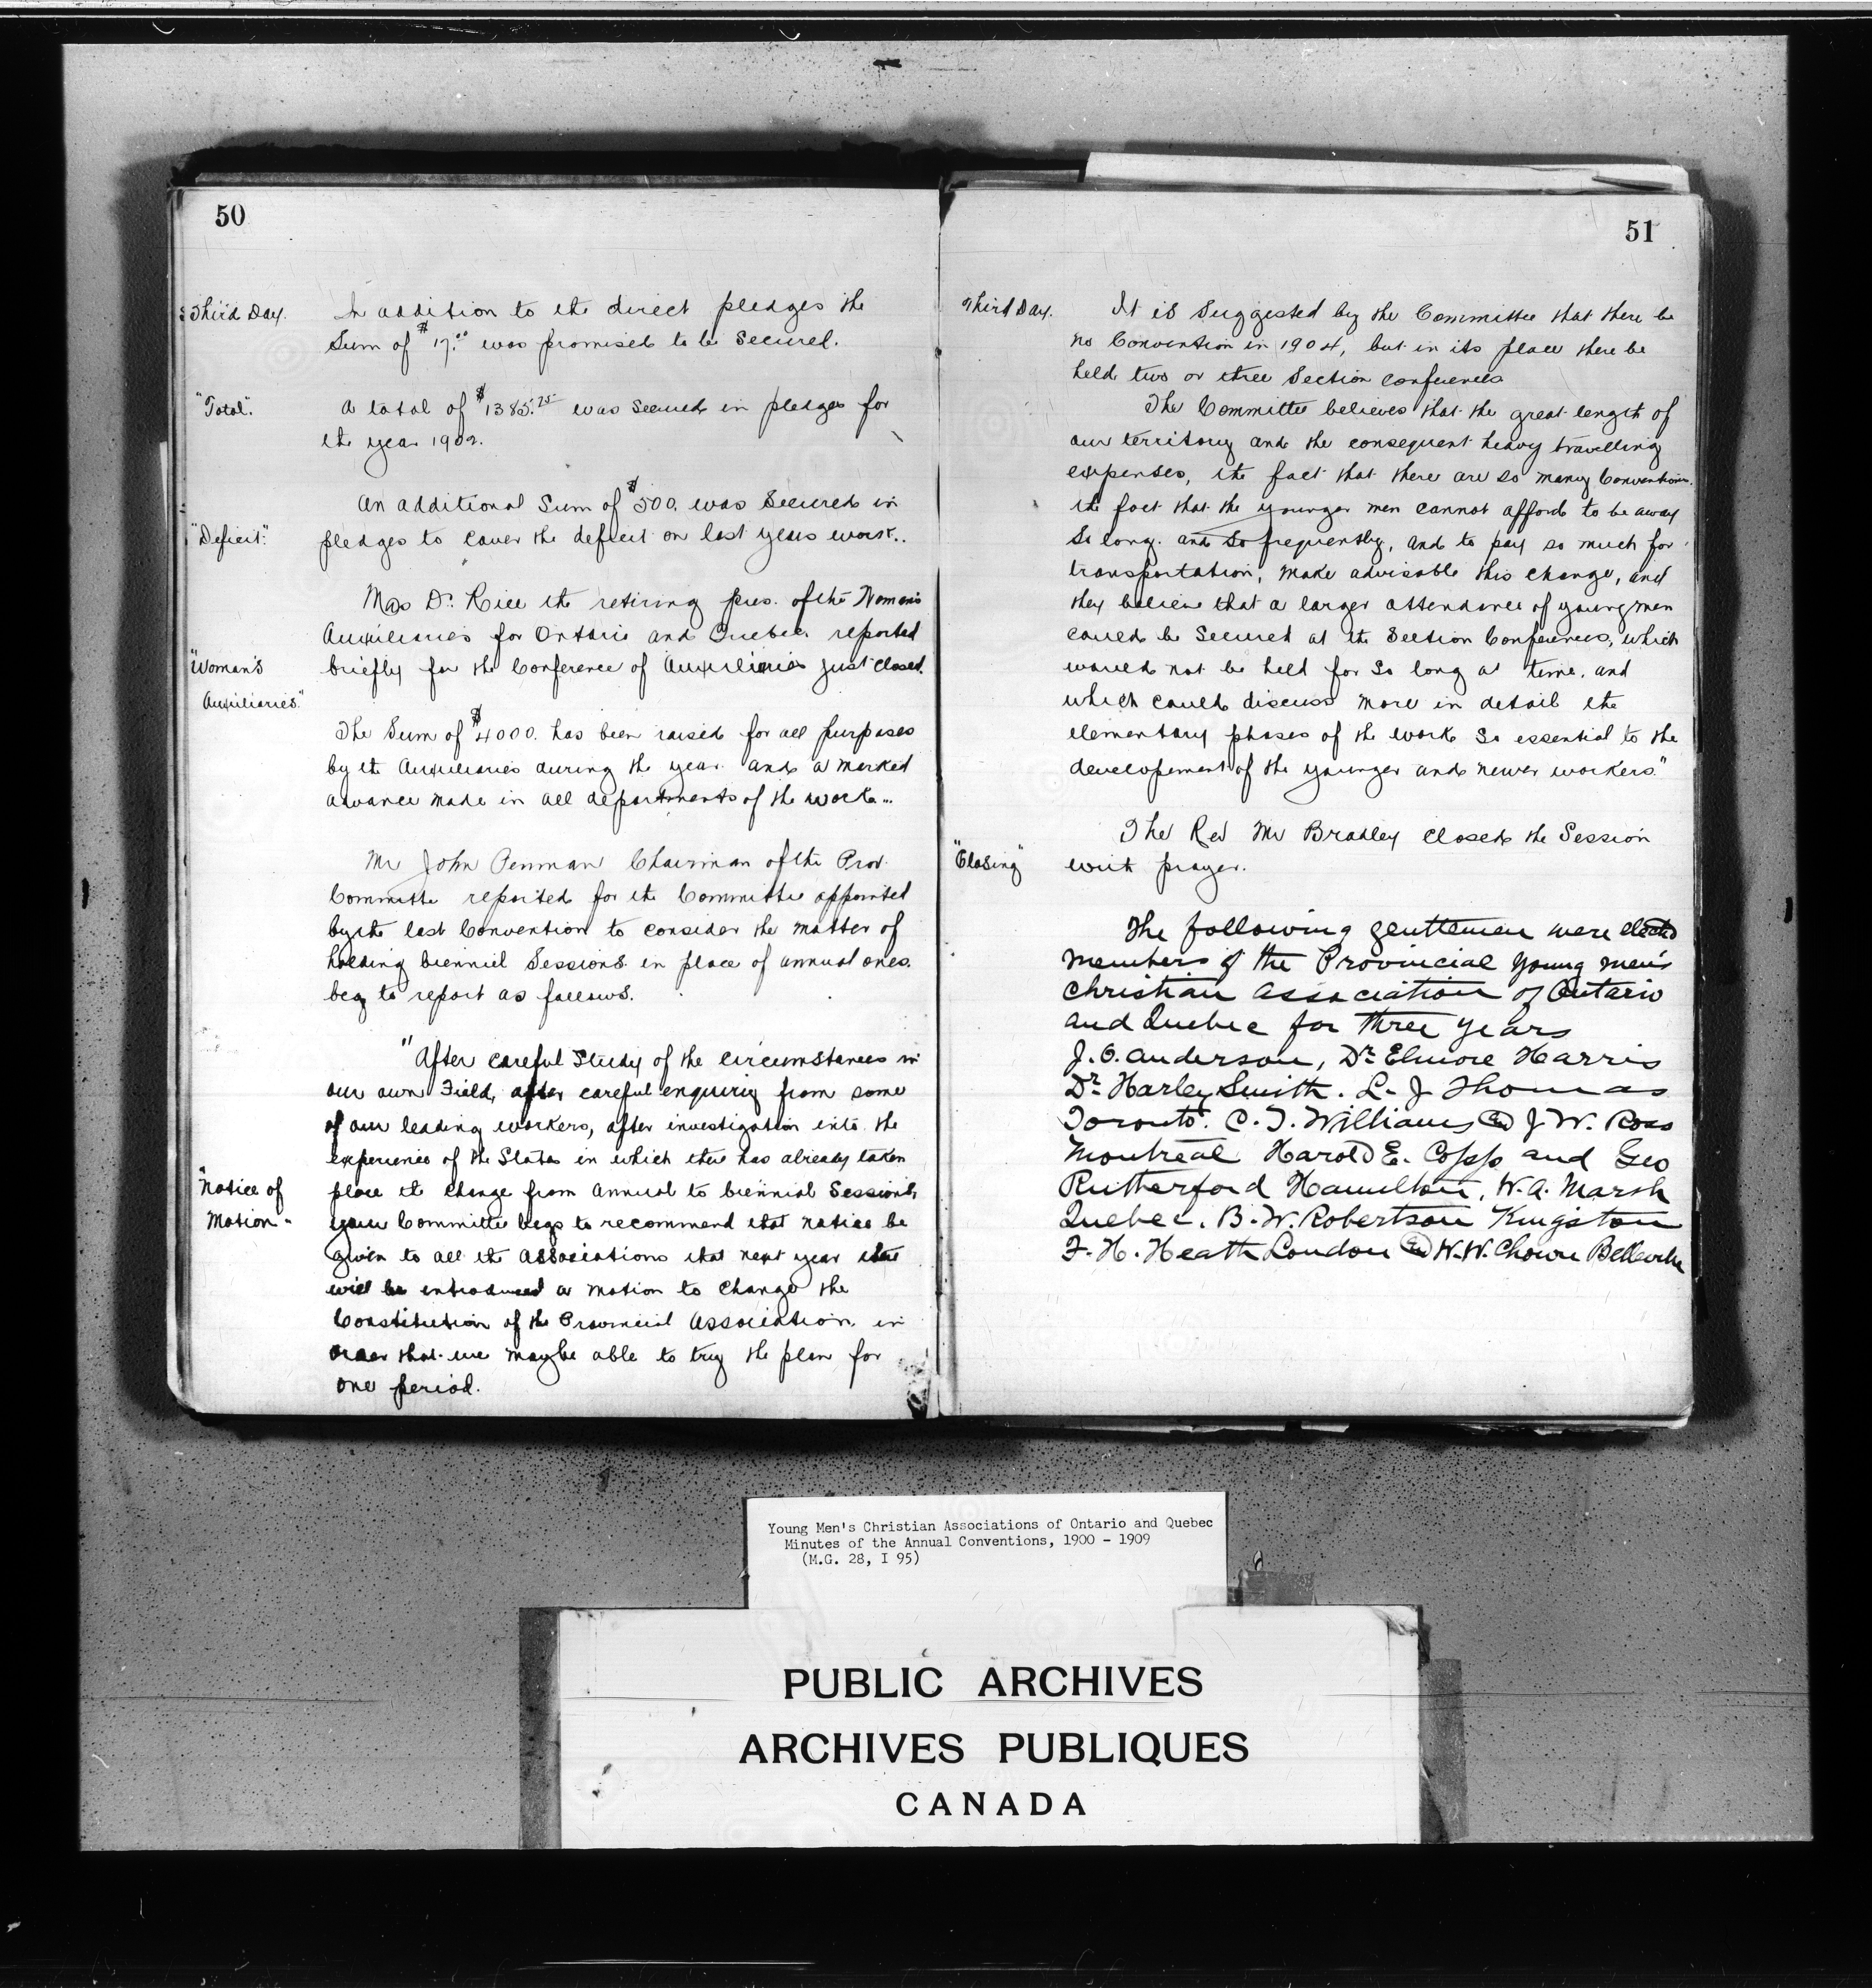 50
Third Day.
In addition to the direct pledges the
Sum of $17.00 was promised to be Secured.
"Total".
A total of $1385.25 was Secured in pledges for
the year 1902.
An additional Sum of $500. was Secured in
"Deficit."
pledges to cover the deficit on last years work..
Mrs Dr. Rice the retiring pres. of the Woman's
Auxiliaries for Ontario and Quebec reported
"Woman's
briefly for the Conference of Auxiliaries just closed.
Auxiliaries."
The Sum of $4000. has been raised for all purposes
by the Auxiliaries during the year and a marked
advance made in all departments of the work...
Mr John Penman Chairman of the Prov.
Committe reported for the Committe appointed
by the last Convention to consider the matter of
holding bienniel Sessions in place of annual ones.
beg to report as follows.
"After careful Study of the circumstances in
our own Field, after careful enquiry from some
of our leading workers, after investigation into the
experience of the States in which there has already taken
"Notice of
place the change from Annual to biennial Sessions,
Motion -
your Committe begs to recommend that notice be
given to all the Associations that next year there
will be introduced a motion to change the
Constitution of the Provincial Association in
order that we may be able to try the plan for
one period.
51
Third Day.
It is Suggested by the Committee that there be
no Convention in 1904, but in its place there be
held two or three Section conferences
The Committe believes that the great length of
our territory and the consequent heavy travelling
expenses, the fact that there are so many Conventions.
the fact that the younger men cannot afford to be away
So long. and So frequently, and to pay so much for
transportation, make advisable this change, and
they believe that a larger attendance of young men
could be Secured at the Section Conferences, which
would not be held for So long a time. and
which could discuss more in detail the
elementary phases of the work So essential to the
developement of the younger and newer workers."
The Rev Mr Bradley closed the Session
"Closing"
with prayer.
The following gentlemen were elected
members of the Provincial Young Men's
Christian Association of Ontario
and Quebec for three years
J.O. Anderson, Dr. Elmore Harris
Dr. Harley Smith. L. J Thomas
Toronto. C. T. Williams and J W. Ross
Montreal Harold E. Copp and Geo
Rutherford Hamilton, W.A. Marsh
Quebec. B.W. Robertson Kingston
F. H. Heath London and W.W. Chown Belleville
Young Men's Christian Associations of Ontario and Quebec
Minutes of the Annual Conventions, 1900 - 1909
(M.G. 28, I 95)
PUBLIC ARCHIVES
ARCHIVES PUBLIQUES
CANADA